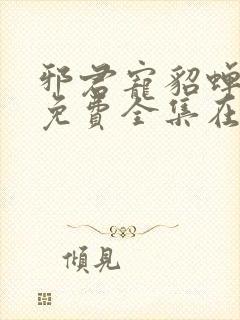 邪君寵貂蟬
免費全集在
傾見